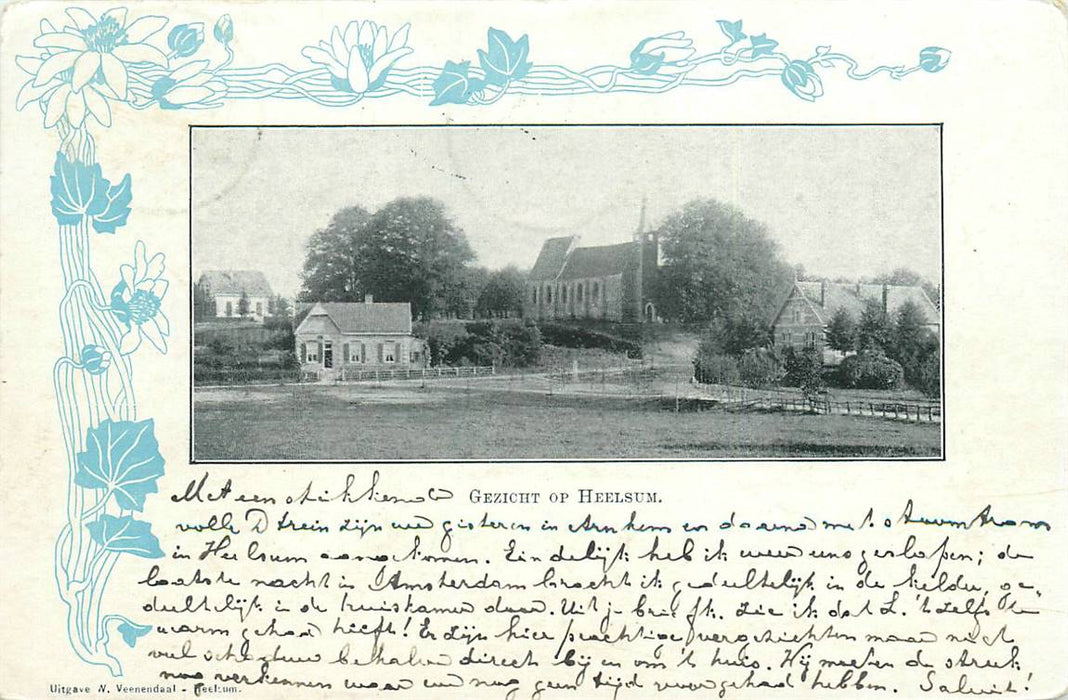 GEZICHT OP HEELSUM.
Met een stikkend
volle D trein zijn we gisteren in Arnhem en daarna met stoomtram
in Heelsum aangekomen. Eindelijk heb ik weer eens geslapen; de
laatste nacht in Amsterdam bracht ik gedeeltelijk in de kelder, ge-
deeltelijk in de huiskamer door. Uit je briefk. zie ik dat L. 't zelfs te
warm gehad heeft! Er zijn hier prachtige vergezichten maar niet
veel schaduw behalve direct bij en om 't huis. Wij moeten de streek
nog verkennen waar we nog geen tijd voor gehad hebben. Saluut!
Uitgave W. Veenendaal - Heelsum.